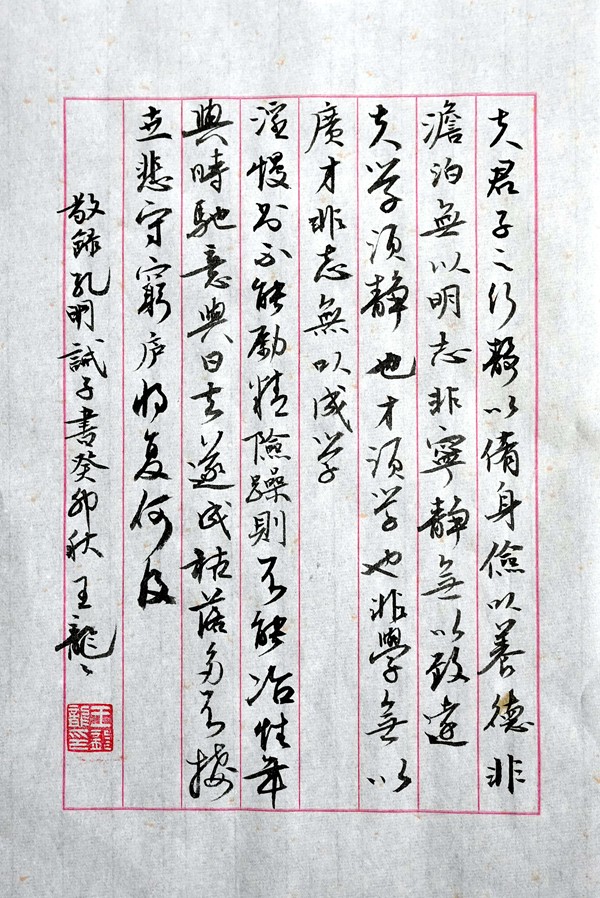 夫君子之行静以脩身儉以養德非
澹泊無以明志非寧静無以致遠
夫学須静也才須学也非學無以
廣才非志無以成学
淫慢则不能励精險躁則不能冶性年
與時馳意與日去遂成枯落多不接
世悲守窮庐将复何及
敬錄孔明誡子書癸卯秋王龍々
王龍印